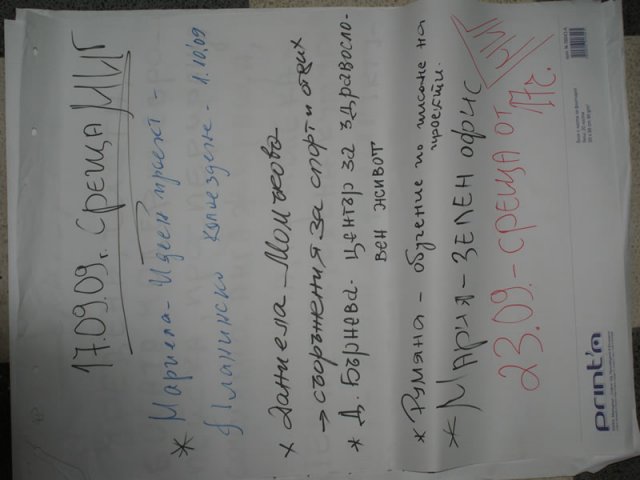 17.09.09г. СРЕЩА МИГ
* Мариела - Идеен проект -
Планинско колоездене - 1.10.09
* Даниела Момчкова
→ съоръжения за спорт и отдих
* Д. Бърнева - център за здравосло-
вен живот
* Румяна - обучение по писане на
проекти.
* Мария - ЗЕЛЕН ОФИС
23.09. - СРЕЩА ОТ 17ч.
МИГ
print'm